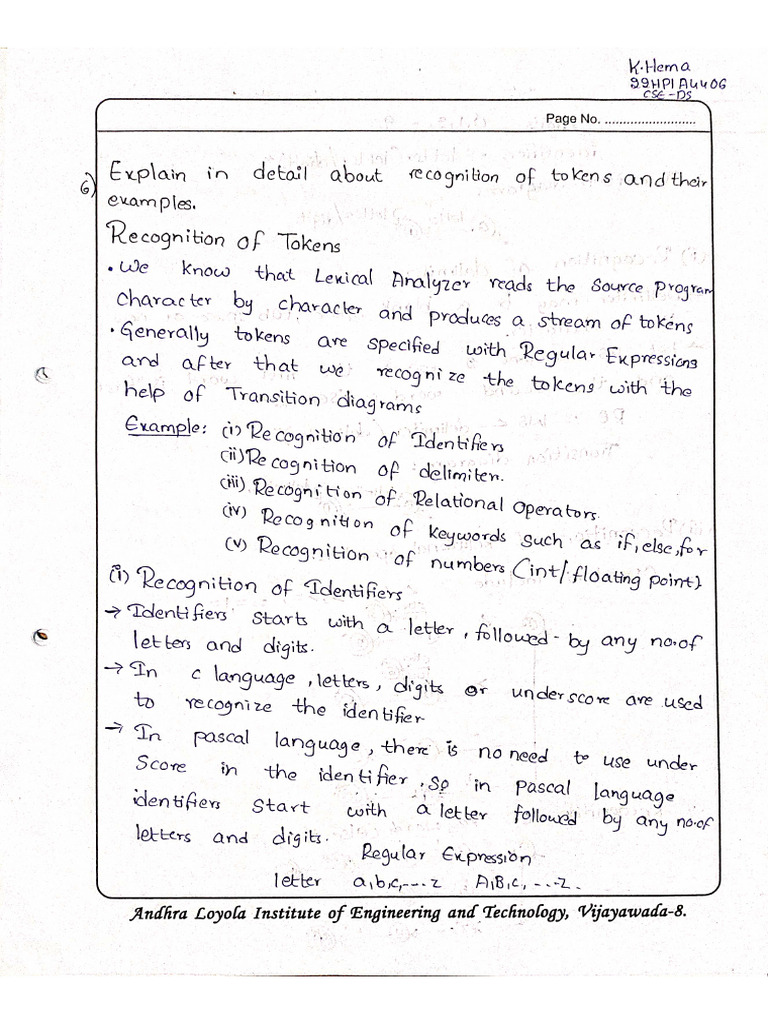 K.Hema
22HP1A4406
CSE-DS
Page No. ..........................
6) Explain in detail about recognition of tokens and their
examples.
Recognition of Tokens
• We know that Lexical Analyzer reads the Source Program
Character by character and produces a stream of tokens
• Generally tokens are specified with Regular Expressions
and after that we recognize the tokens with the
help of Transition diagrams
Example: (i) Recognition of Identifiers
(ii) Recognition of delimiter.
(iii) Recognition of Relational Operators.
(iv) Recognition of keywords such as if, else, for
(v) Recognition of numbers (int/floating point)
(i) Recognition of Identifiers
→ Identifiers starts with a letter, followed by any no.of
letters and digits.
→ In c language, letters, digits or underscore are used
to recognize the identifier
→ In pascal language, there is no need to use under
Score in the identifier, So in pascal language
identifiers Start with a letter followed by any no.of
letters and digits.
Regular Expression
letter a,b,c,---z A,B,c,---z.
Andhra Loyola Institute of Engineering and Technology, Vijayawada-8.